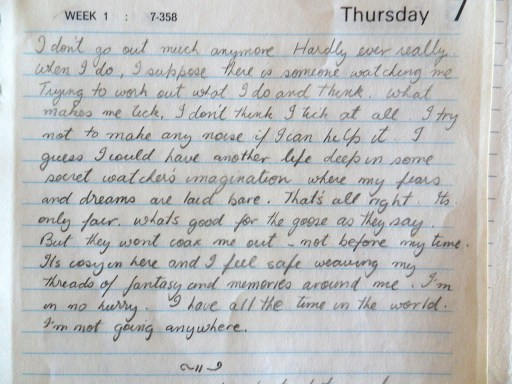 WEEK 1 : 7-358 Thursday 7
I don't go out much anymore Hardly ever really.
When I do, I suppose there is someone watching me
Trying to work out what I do and think. What
makes me tick, I don't think I tick at all. I try
not to make any noise if I can help it. I
guess I could have another life deep in some
secret watcher's imagination where my fears
and dreams are laid bare. That's all right. Its
only fair. What's good for the goose as they say.
But they wont coax me out - not before my time.
Its cosy in here and I feel safe weaving my
threads of fantasy and memories around me. I'm
in no hurry. I have all the time in the world.
I'm not going anywhere.